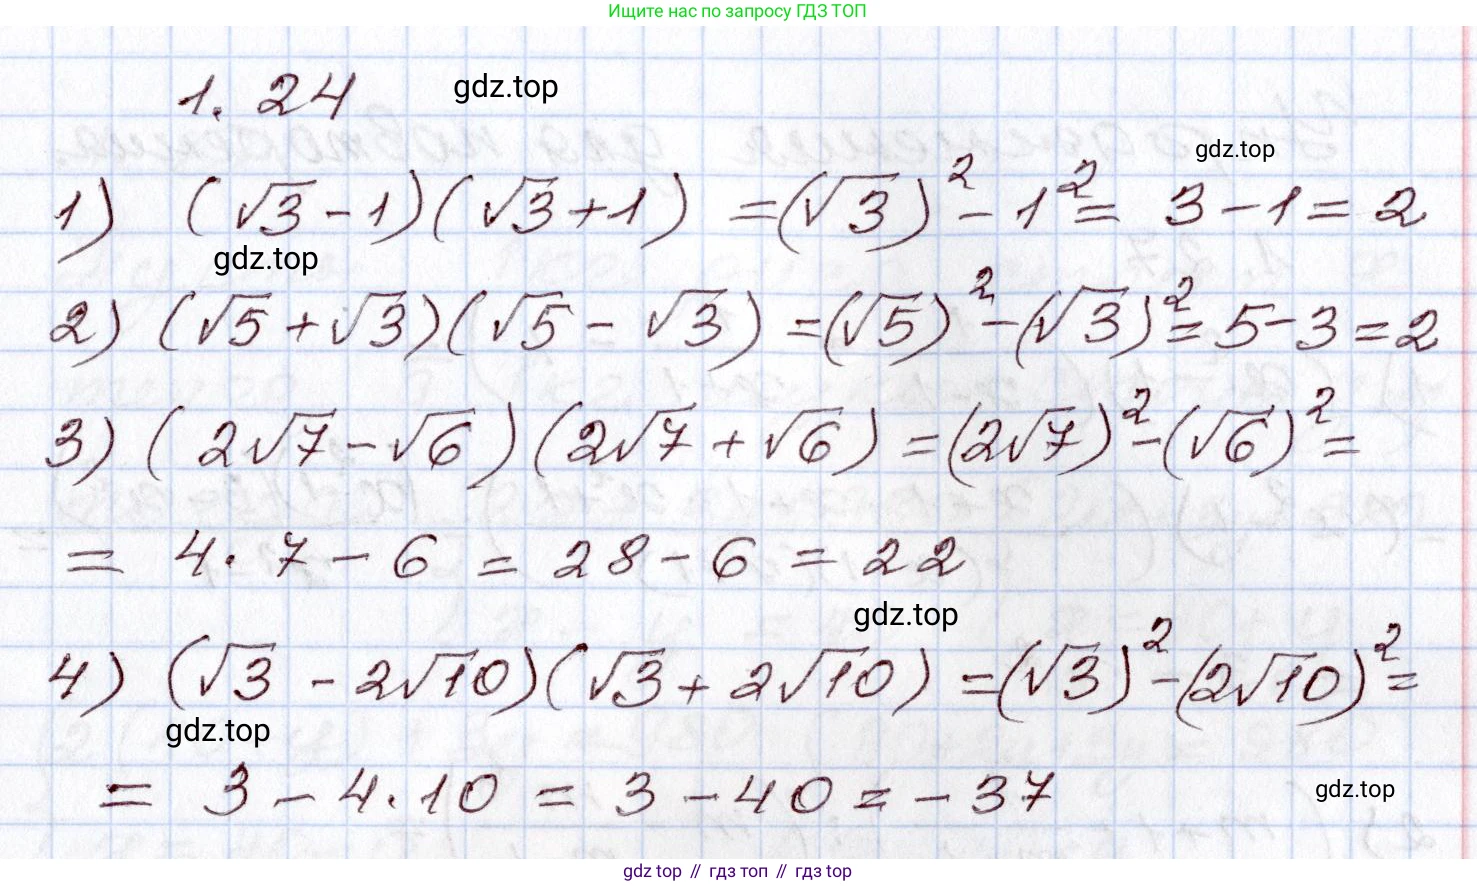 Ищите нас по запросу ГДЗ ТОП
1. 24 gdz.top
gdz.top
1) (√3 - 1)(√3 + 1) = (√3)² - 1² = 3 - 1 = 2
gdz.top
2) (√5 + √3)(√5 - √3) = (√5)² - (√3)² = 5 - 3 = 2
3) (2√7 - √6)(2√7 + √6) = (2√7)² - (√6)² =
= 4 · 7 - 6 = 28 - 6 = 22
gdz.top
4) (√3 - 2√10)(√3 + 2√10) = (√3)² - (2√10)² =
gdz.top
= 3 - 4 · 10 = 3 - 40 = - 37
gdz.top
gdz top // гдз топ // gdz top